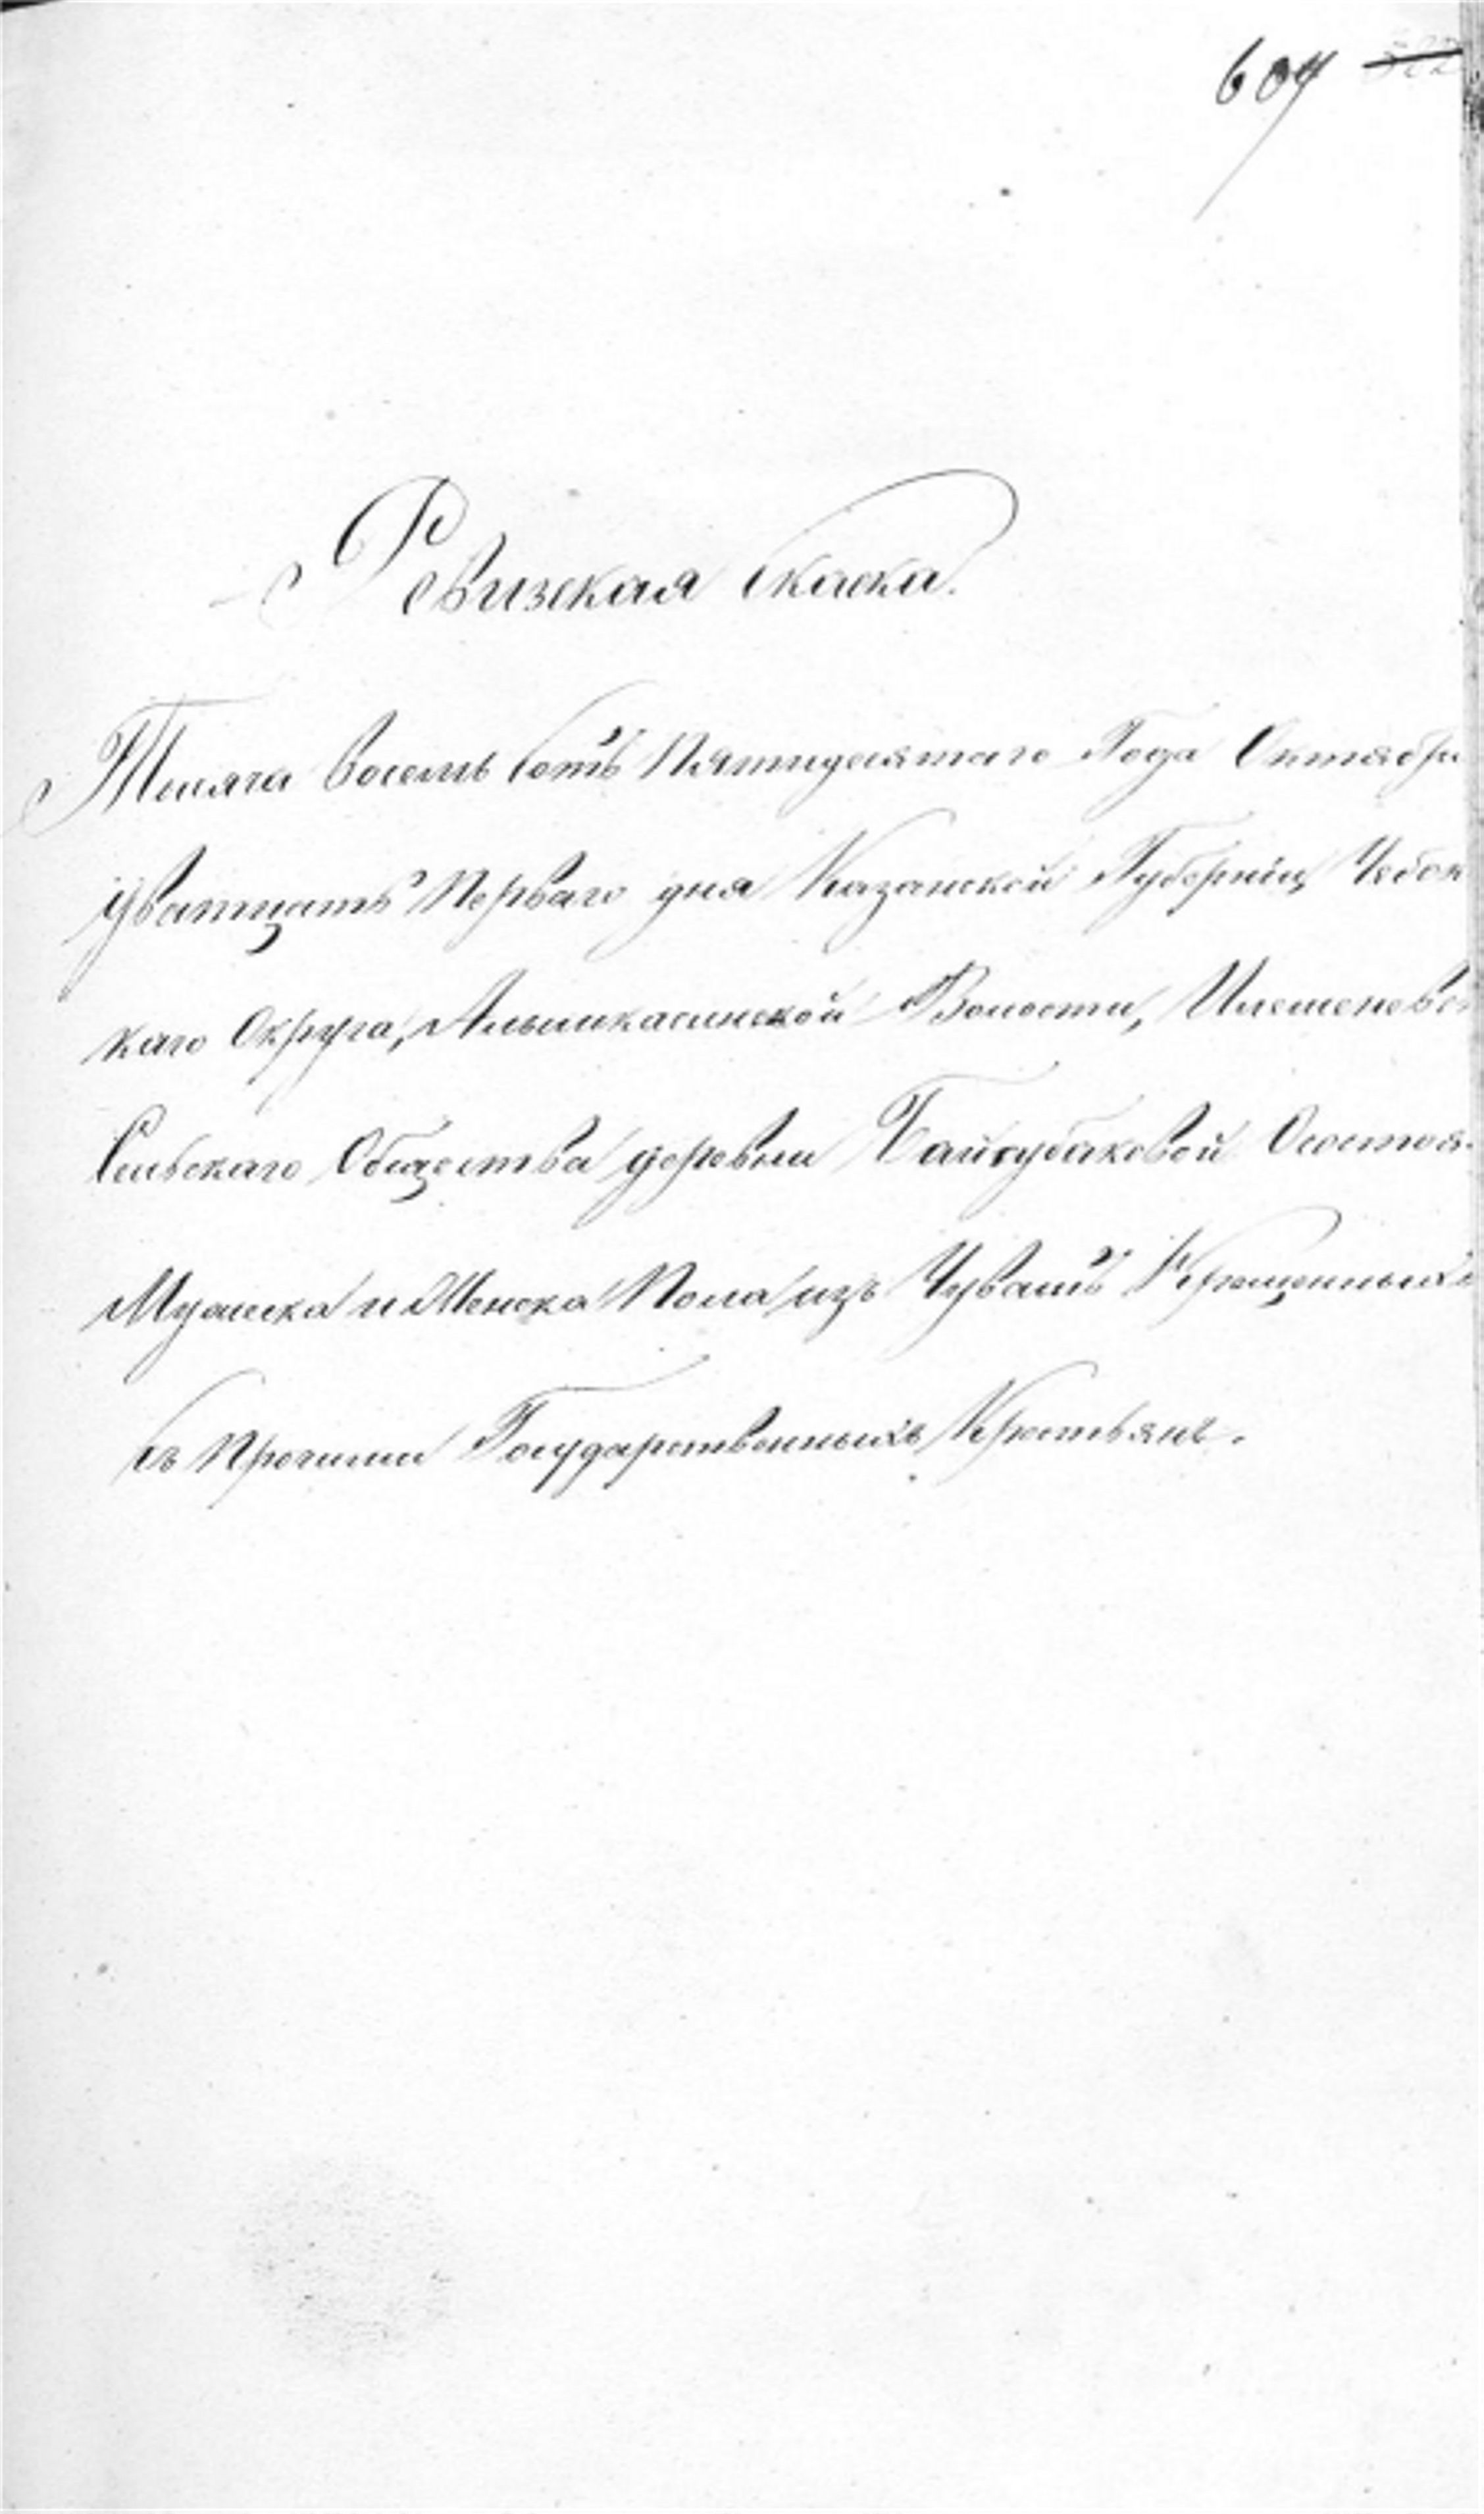 604
Ревизская Скаска.
Тысяча восемь сотъ Пятидесятаго Года Октября
дватцать Перваго дня Казанской Губерніи, Чебок
каго Округа, Алымкасинской Волости,
Сельскаго Общества деревни Байсубаковой О состоя
Мужска и Женска Пола изъ Чувашъ Крещенныхъ
съ Прочими Государственныхъ Крестьянъ.